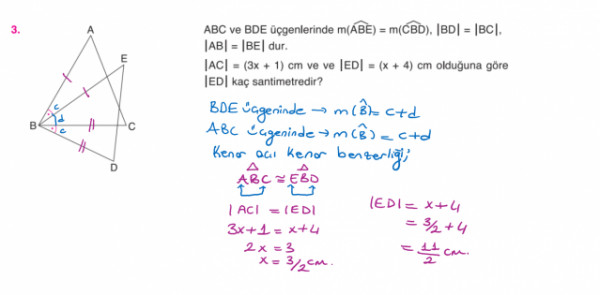 3.
ABC ve BDE üçgenlerinde m(ABE) = m(CBD), |BD| = |BC|,
|AB| = |BE| dur.
|AC| = (3x + 1) cm ve ve |ED| = (x + 4) cm olduğuna göre
|ED| kaç santimetredir?
A
E
B
C
D
c
d
c
BDE üçgeninde → m(B̂) = c+d
ABC üçgeninde → m(B̂) = c+d
Kenar açı kenar benzerliği;
ABC ≅ EBD
|AC| = |ED|
3x+1 = x+4
2x = 3
x = 3/2 cm.
|ED| = x+4
= 3/2 + 4
= 11/2 cm.